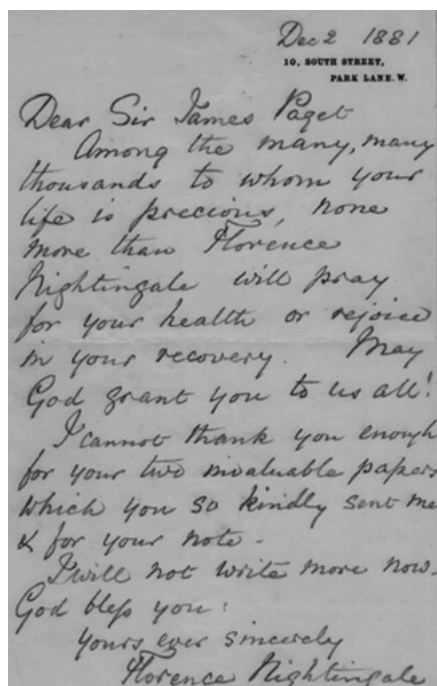 Dec 2 1881
10, SOUTH STREET,
PARK LANE. W.
Dear Sir James Paget
Among the many, many
thousands to whom your
life is precious, none
more than Florence
Nightingale will pray
for your health or rejoice
in your recovery. May
God grant you to us all!
I cannot thank you enough
for your two invaluable papers
which you so kindly sent me
& for your note -
I will not write more now.
God bless you:
yours ever sincerely
Florence Nightingale